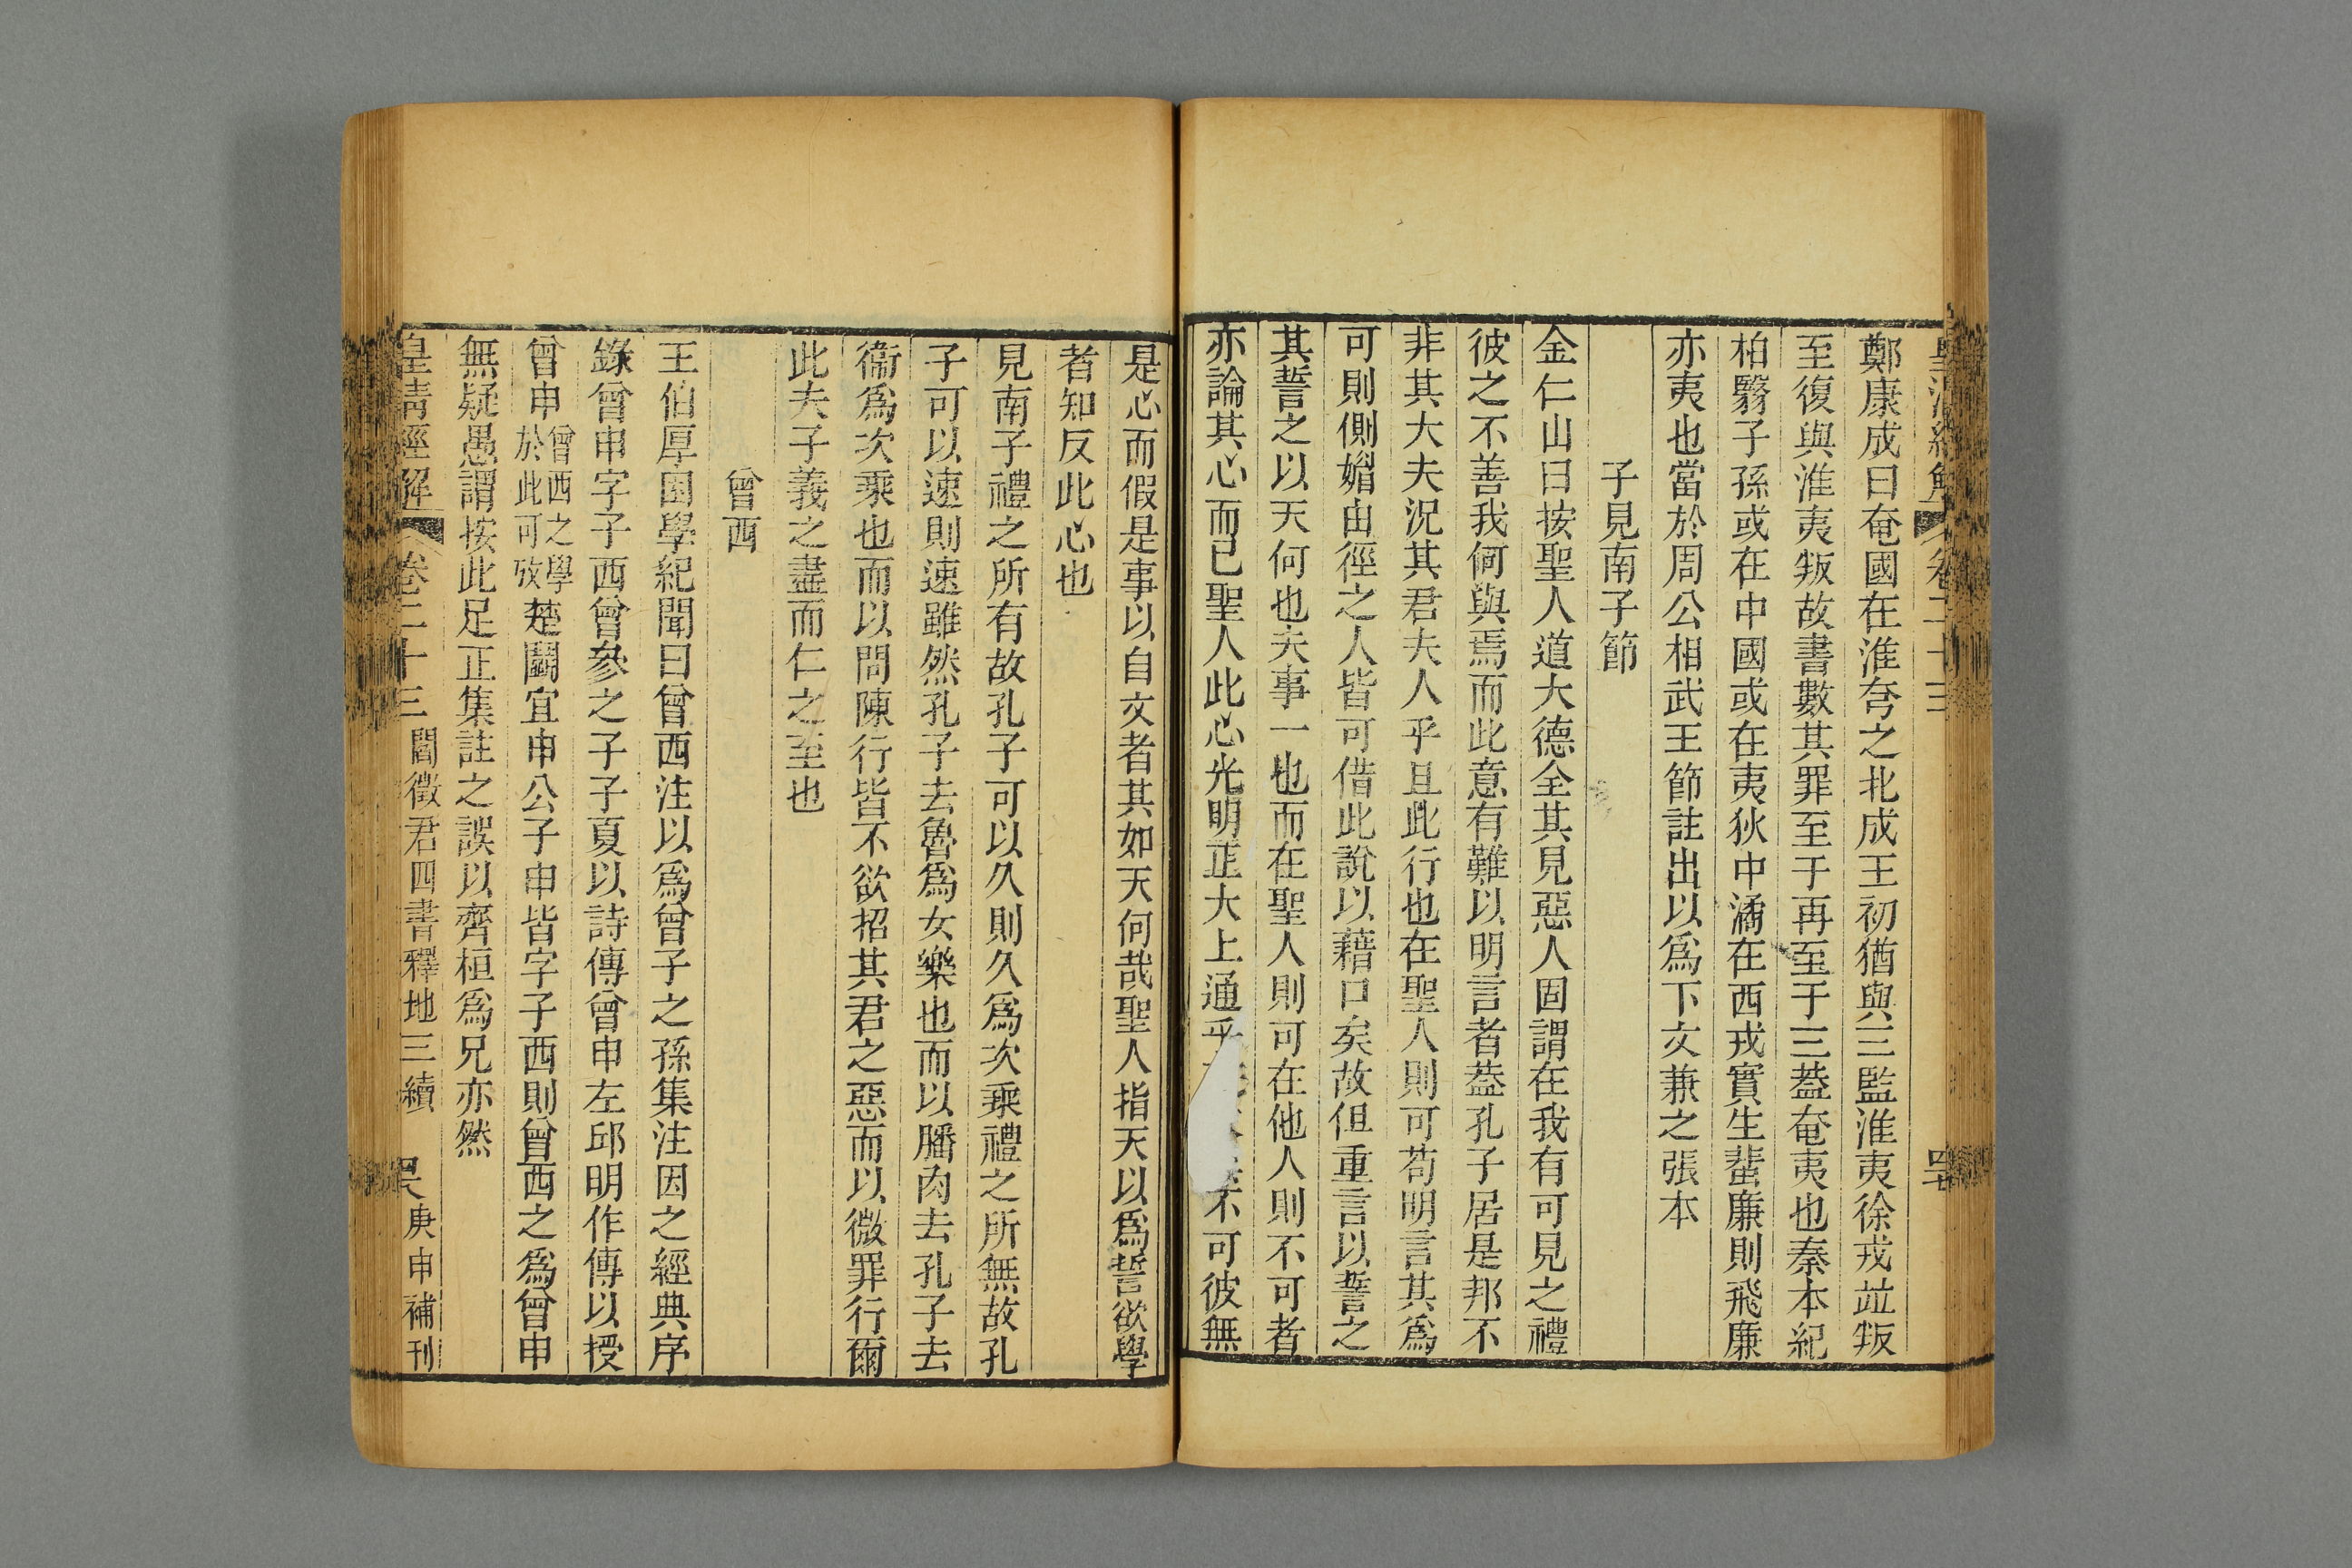 皇清經解 卷二十三 四七
鄭康成曰奄國在淮夸之北成王初猶與三監淮夷徐戎竝叛
至復與淮夷叛故書數其罪至于再至于三葢奄夷也秦本紀
柏翳子孫或在中國或在夷狄中潏在西戎實生蜚廉則飛廉
亦夷也當於周公相武王節註出以爲下文兼之張本
子見南子節
金仁山曰按聖人道大德全其見惡人固謂在我有可見之禮
彼之不善我何與焉而此意有難以明言者葢孔子居是邦不
非其大夫況其君夫人乎且此行也在聖人則可苟明言其爲
可則側媚由徑之人皆可借此說以藉口矣故但重言以誓之
其誓之以天何也夫事一也而在聖人則可在他人則不可者
亦論其心而已聖人此心光明正大上通乎不可彼無
是心而假是事以自文者其如天何哉聖人指天以爲誓欲學
者知反此心也
見南子禮之所有故孔子可以久則久爲次乘禮之所無故孔
子可以速則速雖然孔子去魯爲女樂也而以膰肉去孔子去
衞爲次乘也而以問陳行皆不欲招其君之惡而以微罪行爾
此夫子義之盡而仁之至也
曾西
王伯厚困學紀聞曰曾西注以爲曾子之孫集注因之經典序
錄曾申字子西曾參之子子夏以詩傳曾申左邱明作傳以授
曾申曾西之學於此可攷楚鬭宜申公子申皆字子西則曾西之爲曾申
無疑愚謂按此足正集註之誤以齊桓爲兄亦然
皇清經解 卷二十三 閻徵君四書釋地三續 庚申補刊